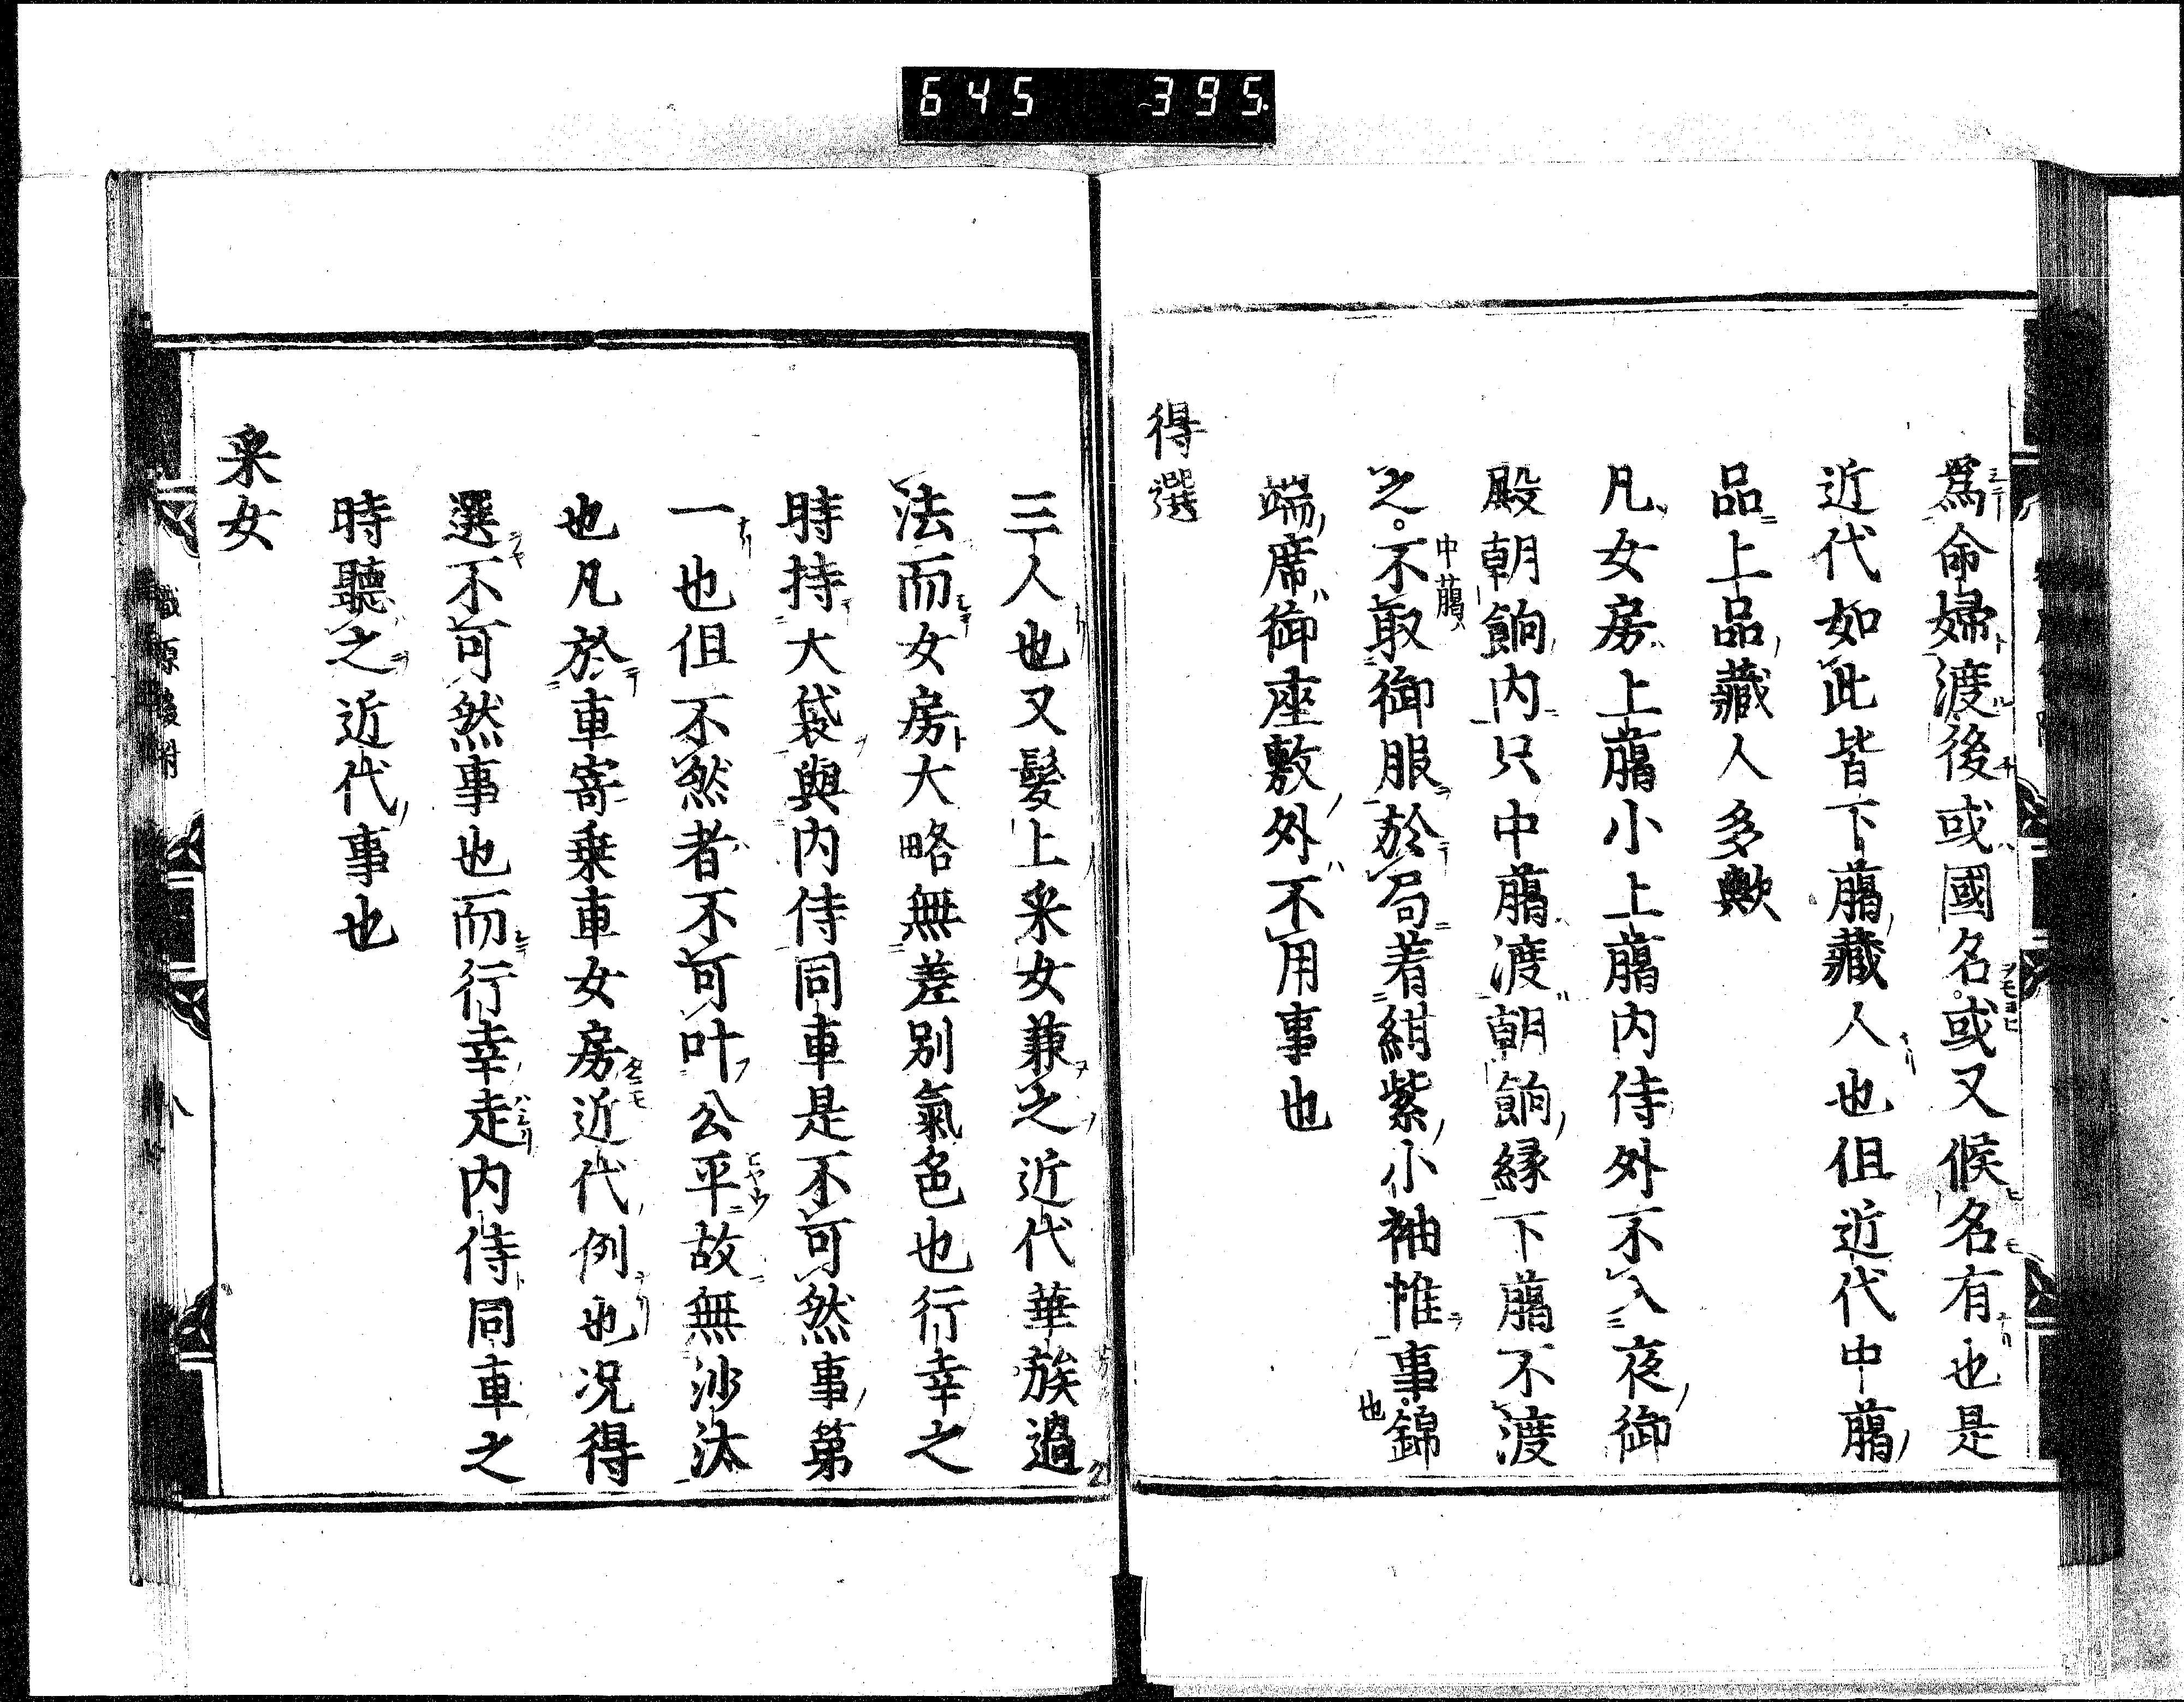 645 395
為命婦渡後或國名或又候名有也是
近代如此皆下﨟藏人也但近代中﨟
品上品藏人多歟
凡女房上﨟小上﨟内侍外不入夜御
殿朝餉内只中﨟渡朝餉縁下﨟不渡
之不取御服於局着紺紫小袖惟事錦
中﨟
也
端席御座敷外不用事也
得選
三人也又髪上采女兼之近代華族過
法而女房大略無差別氣色也行幸之
時持大袋與内侍同車是不可然事第
一也但不然者不可叶公平故無沙汰
也凡於車寄乗車女房近代例也况得
選不可然事也而行幸走内侍同車之
時聽之近代事也
采女
八